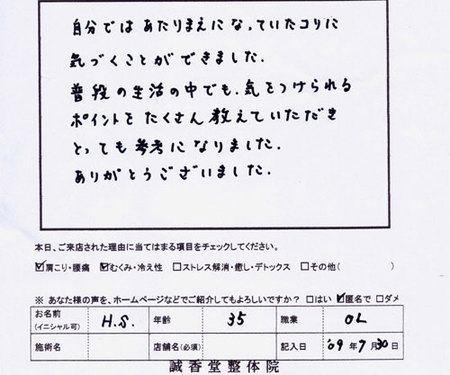 自分ではあたりまえになっていたコリに
気づくことができました.
普段の生活の中でも.気をつけられる
ポイントをたくさん教えていただき
とっても考考になりました.
ありがとうございました.
本日、ご来店された理由に当てはまる項目をチェックしてください。
☑肩こり・腰痛 ☑むくみ・冷え性 □ストレス解消・癒し・デトックス □その他( )
※ あなた様の声を、ホームページなどでご紹介してもよろしいですか? □はい ☑匿名で □ダメ
お名前 (イニシャル可) H.S. 年齢 35 職業 OL
施術名 店舗名(必須) 記入日 '09年7月30日
誠香堂整体院